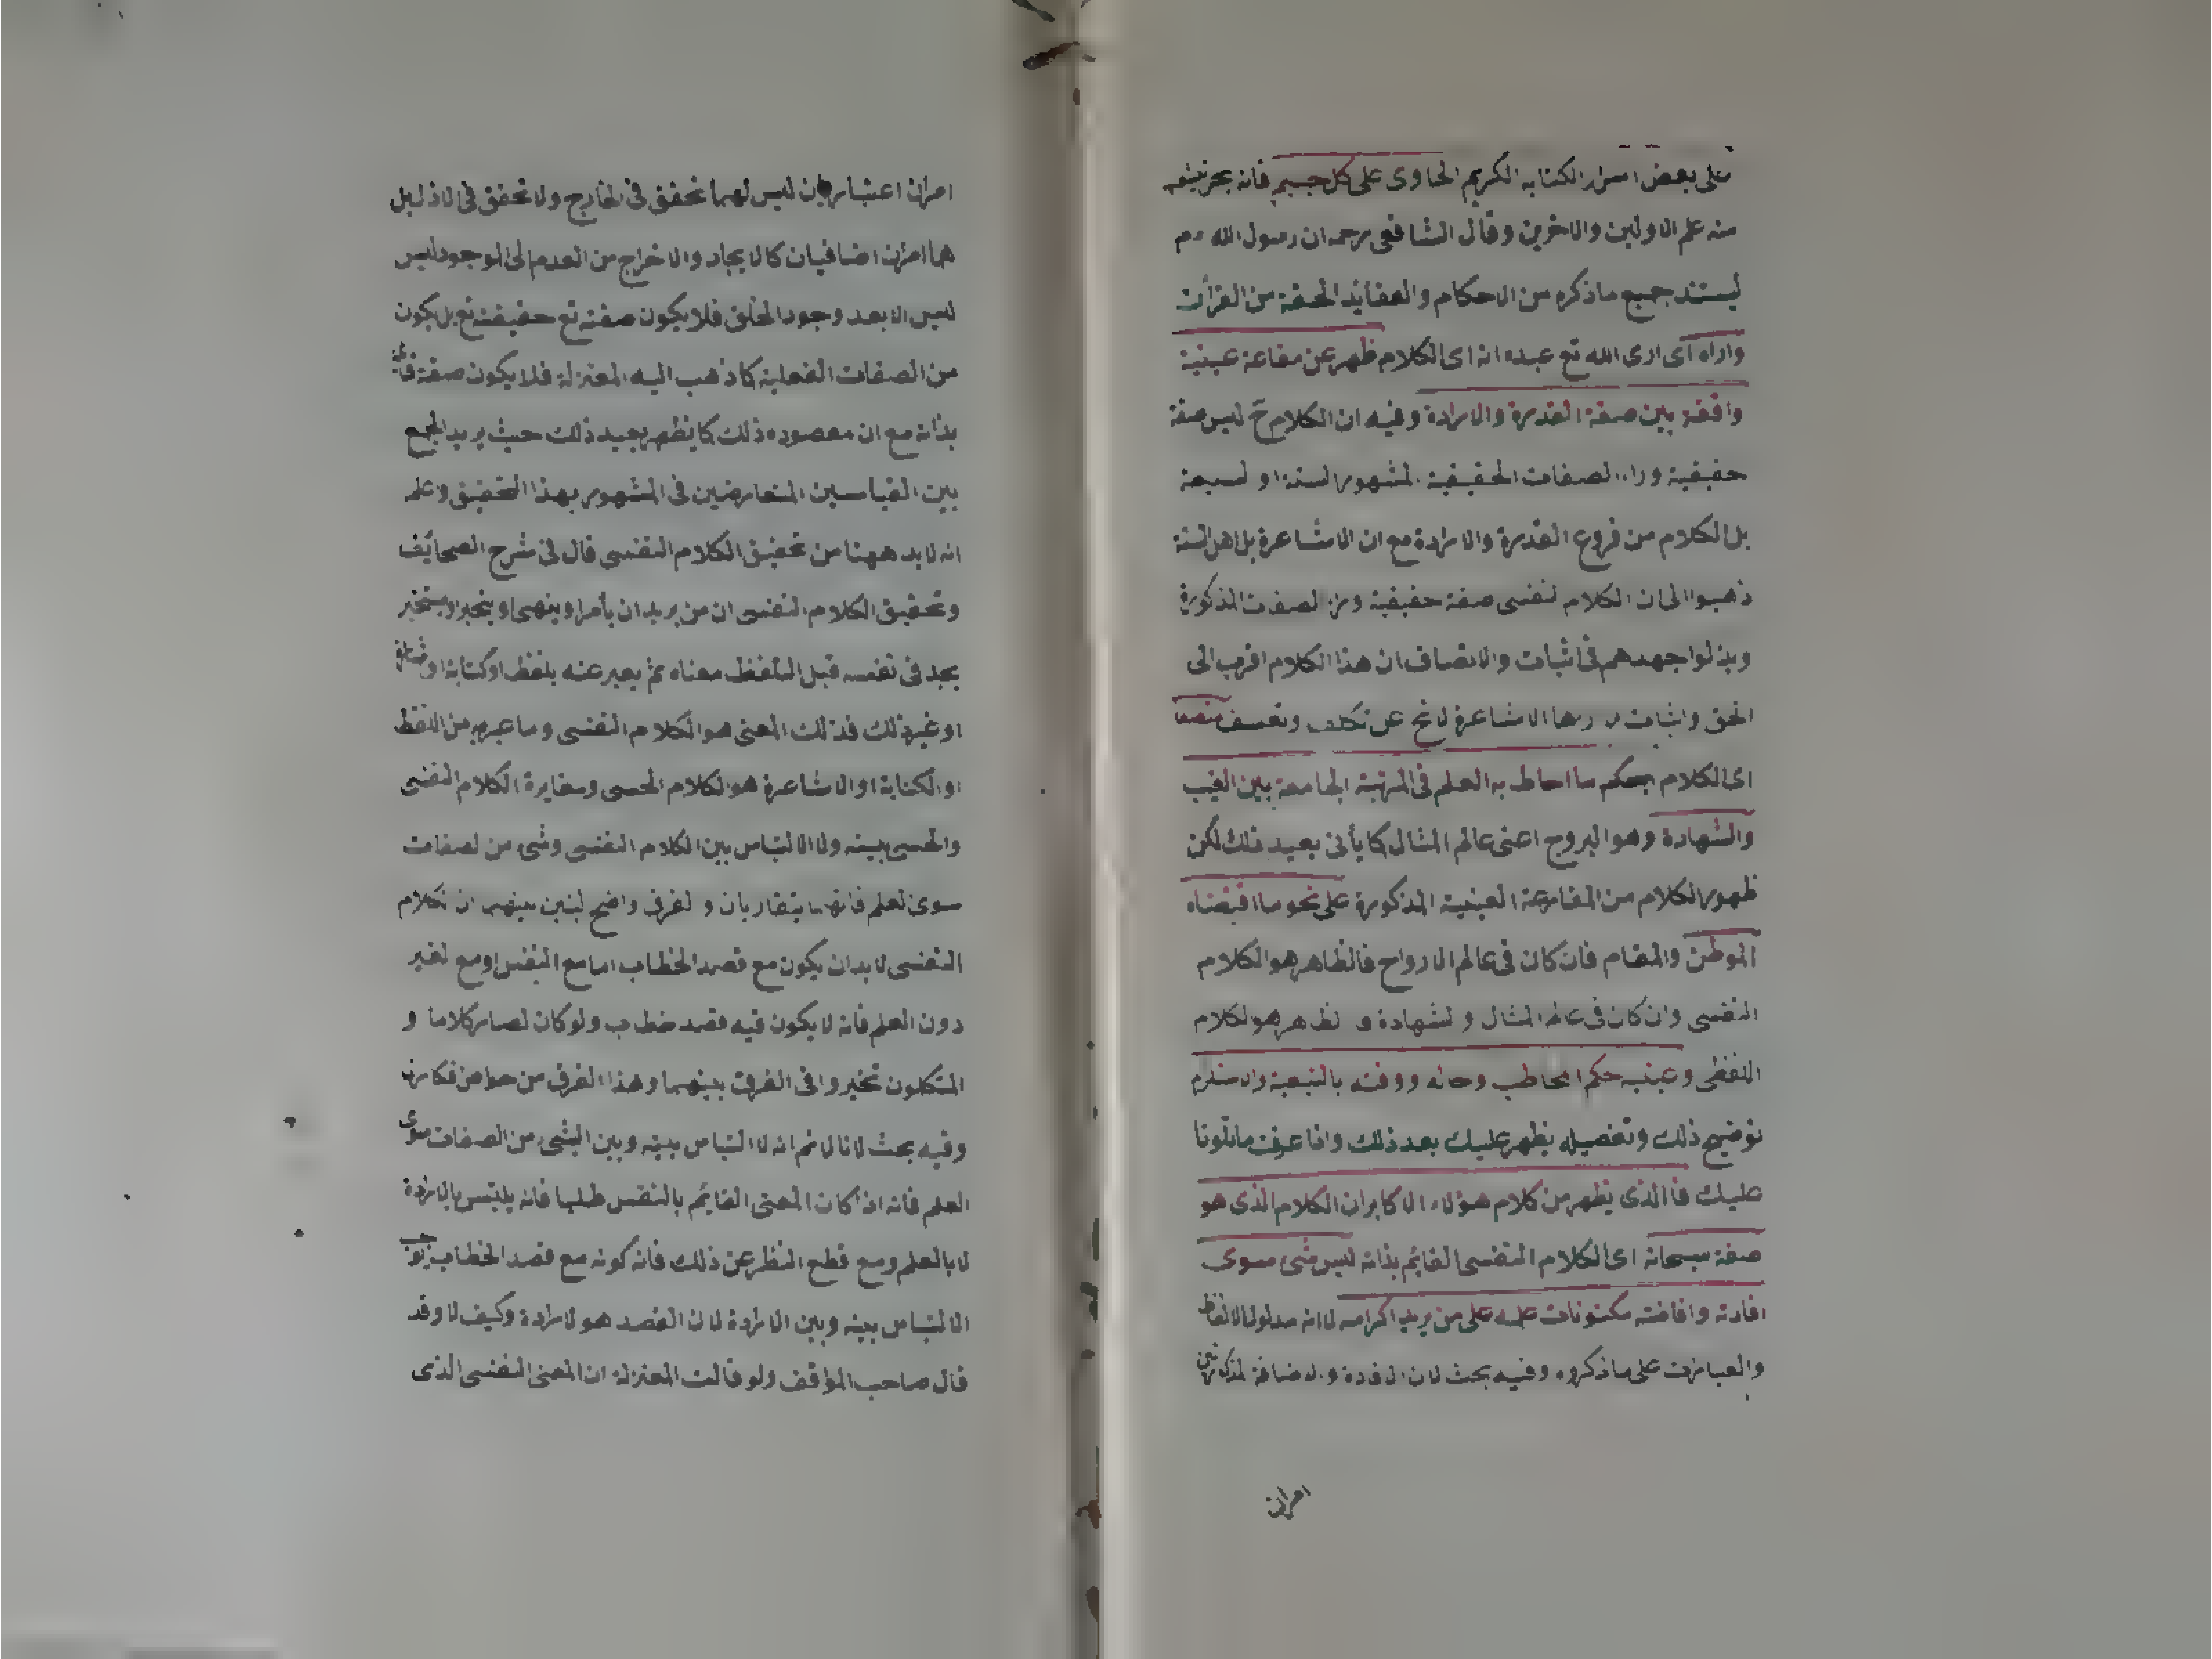 على بعض اسرار الكتابه الكريم الحاوى على كل جسيم فانه بحر
منه علم الاولين والاخرين وقال الشافعى رحمه ان رسول الله
ليستند جميع ماذكره من الاحكام والعقائد الحقة من القرأن
واراه آى ارى الله تع عبده انه اى الكلام ظهر عن مقاعة عينية
واقفة بين صفة القدرة والارادة وفيه ان الكلام ح ليس صفة
حقيقية وراء الصفات الحقيقية المشهورا لستة او لسبعة
بل الكلام من فروع القدرة والارادة مع ان الاشاعرة بل اهل السنة
ذهبوا الى ان الكلام لنفسى صفة حقيقية وراء لصفات المذكورة
وبذلوا جهدهم فى اثبات والانصاف ان هذا الكلام اقرب الى
الحق واثبات الاشاعرة لا تخ عن تكلف وتعسف
اى الكلام بحكم ما احاط به العلم فى المرتبة الجامعة بين الغيب
والشهادة وهو البروج اعنى عالم المثال كما يأتى بعيد ذلك لكن
ظهور الكلام من المقارعة الغيبية المذكورة على نحو ما اقتضاه
الموطن والمقام فان كان فى عالم الارواح فالظاهر هو الكلام
النفسى وان كان فى عالم المثال و لشهادة و لظاهر هو لكلام
اللفظى وعينه حكم المخاطب وحاله ووقته بالتبعية والاستلزم
توضيح ذلك وتفصيله يظهر عليك بعد ذلك واذا عرفت ماتلونا
عليك فالذى يظهر من كلام هؤلاء الاكابر ان الكلام الذى هو
صفة سبحانه اى الكلام النفسى القايم بذاته ليس شئ سوى
افادته وافاضته مكنونات علمه على من يريد اكرامه لا انه مدلول الالفاظ
والعبارات على ماذكروه وفيه بحث لان الافادة والاضافة المذكورتين
امران
امران اعتباريان ليس لهما تحقق فى الخارج ولا تحقق فى الازل بل
هما امران اضافيان كالايجاد والاخراج من العدم الى الوجود ليس
ليس الا بعد وجود الخلق فلا يكون صفته تع حقيقته تع بل يكون
من الصفات الفعلية كما ذهب اليه المعتزلة فلا يكون صفة قائمة
بذاته مع ان مقصوده ذلك كما يظهر بعيد ذلك حيث يريد الجمع
بين القياسين المتعارضين فى المشهور بهذا التحقيق واعلم
انه لا بد ههنا من تحقيق الكلام النفسى قال فى شرح الصحايف
وتحقيق الكلام النفسى ان من يريد ان يأمر او ينهى او يخبر او يستخبر
يجد فى نفسه قبل التلفظ معناه ثم يعبر عنه بلفظ او كتابة او
او غير ذلك فذلك المعنى هو الكلام النفسى وما عبر به من اللفظ
او الكتابة او الاشاعرة هو الكلام الحسى ومغايرة الكلام النفسى
والحسى بينه ولا الالتباس بين الكلام النفسى وشئ من لصفات
سوى لعلم فانهما يتقاربان و لفرق واضح لبنين بينهما ان كلام
النفسى لابد ان يكون مع قصد الخطاب اما مع النفس او مع لغير
دون العلم فانه لا يكون فيه قصد خطاب ولو كان لصار كلاما و
المتكلمون تحيروا فى الفرق بينهما وهذا الفرق من خواص
وفيه بحث لانا لانم انه لا التباس بينه وبين الشئ من الصفات سوى
العلم فانه اذا كان المعنى القايم بالنفس طلبا فانه يلتبس بالارادة
لا بالعلم ومع قطع النظر عن ذلك فانه كونه مع قصد الخطاب
الالتباس بينه وبين الارادة لان القصد هو لارادة وكيف لا وقد
قال صاحب المواقف ولو قالت المعتزلة ان المعنى النفسى الذى